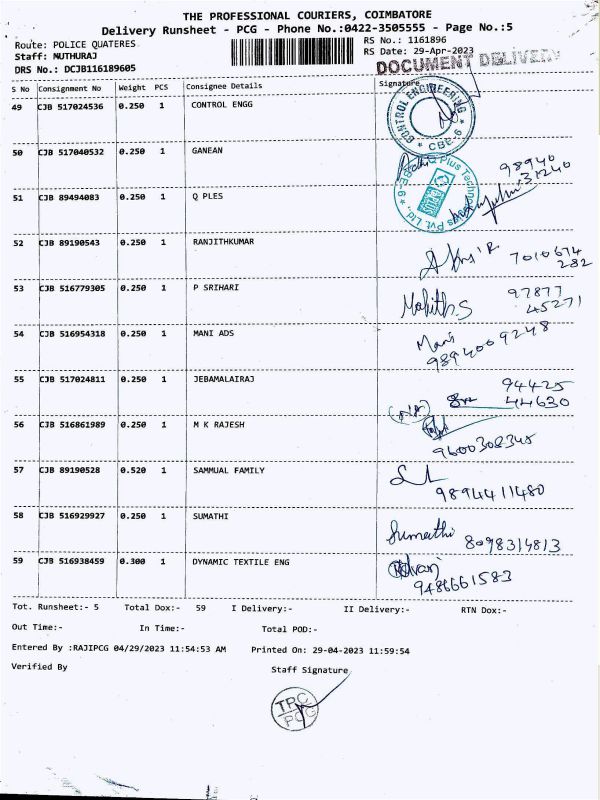 THE PROFESSIONAL COURIERS, COIMBATORE
Delivery Runsheet - PCG - Phone No.:0422-3505555 - Page No.:5
Route: POLICE QUATERES
RS No.: 1161896
Staff: MUTHURAJ
RS Date: 29-Apr-2023
DRS No.: DCJB116189605
DOCUMENT DELIVERY
S No Consignment No Weight PCS Consignee Details Signature
49 CJB 517024536 0.250 1 CONTROL ENGG
CONTROL ENGINEERING * CBE-6 *
50 CJB 517040532 0.250 1 GANEAN
98940
31240
Q Plus Technologies Pvt. Ltd.,
51 CJB 89494083 0.250 1 Q PLES
52 CJB 89190543 0.250 1 RANJITHKUMAR
7010674
282
53 CJB 516779305 0.250 1 P SRIHARI
Mohith.S 97877
45271
54 CJB 516954318 0.250 1 MANI ADS
Mani
9894009248
55 CJB 517024811 0.250 1 JEBAMALAIRAJ
94425
44630
56 CJB 516861989 0.250 1 M K RAJESH
9600308345
57 CJB 89190528 0.520 1 SAMMUAL FAMILY
9894411480
58 CJB 516929927 0.250 1 SUMATHI
Sumathi 8098314813
59 CJB 516938459 0.300 1 DYNAMIC TEXTILE ENG
9486661583
Tot. Runsheet:- 5 Total Dox:- 59 I Delivery:- II Delivery:- RTN Dox:-
Out Time:- In Time:- Total POD:-
Entered By :RAJIPCG 04/29/2023 11:54:53 AM Printed On: 29-04-2023 11:59:54
Verified By Staff Signature
TPC
PCG